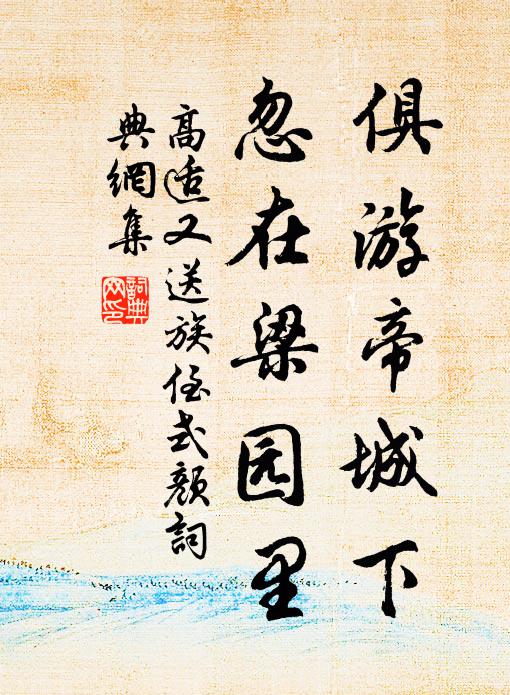 俱游帝城下
忽在梁园里
高适又送族侄式颜詞
典網集
詞典
网印